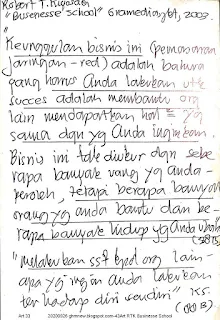 Robert T. Kiyosaki
"Businesse School" Gramediapgt, 2003
"Keunggulan bisnis ini (pemasaran
jaringan-red) adalah bahwa
yang harus Anda lakukan utk
succes adalah membantu org
lain mendapatkan hal² yg
sama dgn yg Anda inginkan.
Bisnis ini tak diukur dgn sebe
rapa banyak uang yg anda
peroleh, tetapi berapa banyak
orang yg anda bantu dan be-
rapa banyak hidup yg Anda ubah"
"melakukan sst kpd org lain
apa yg ingin anda lakukan
terhadap diri sendiri"
Art 33 20200926 ghmnew.blogspot.com-42Art RTK Businesse School